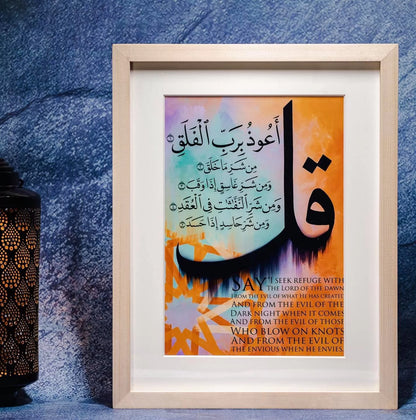 قل
أَعُوذُ بِرَبِّ ٱلْفَلَقِ ١
مِن شَرِّ مَا خَلَقَ ٢
وَمِن شَرِّ غَاسِقٍ إِذَا وَقَبَ ٣
وَمِن شَرِّ ٱلنَّفَّـٰثَـٰتِ فِى ٱلْعُقَدِ ٤
وَمِن شَرِّ حَاسِدٍ إِذَا حَسَدَ ٥
SAY "I SEEK REFUGE WITH
THE LORD OF THE DAWN
FROM THE EVIL OF WHAT HE HAS CREATED
AND FROM THE EVIL OF THE
DARK NIGHT WHEN IT COMES
AND FROM THE EVIL OF THOSE
WHO BLOW ON KNOTS
AND FROM THE EVIL OF
THE ENVIOUS WHEN HE ENVIES.